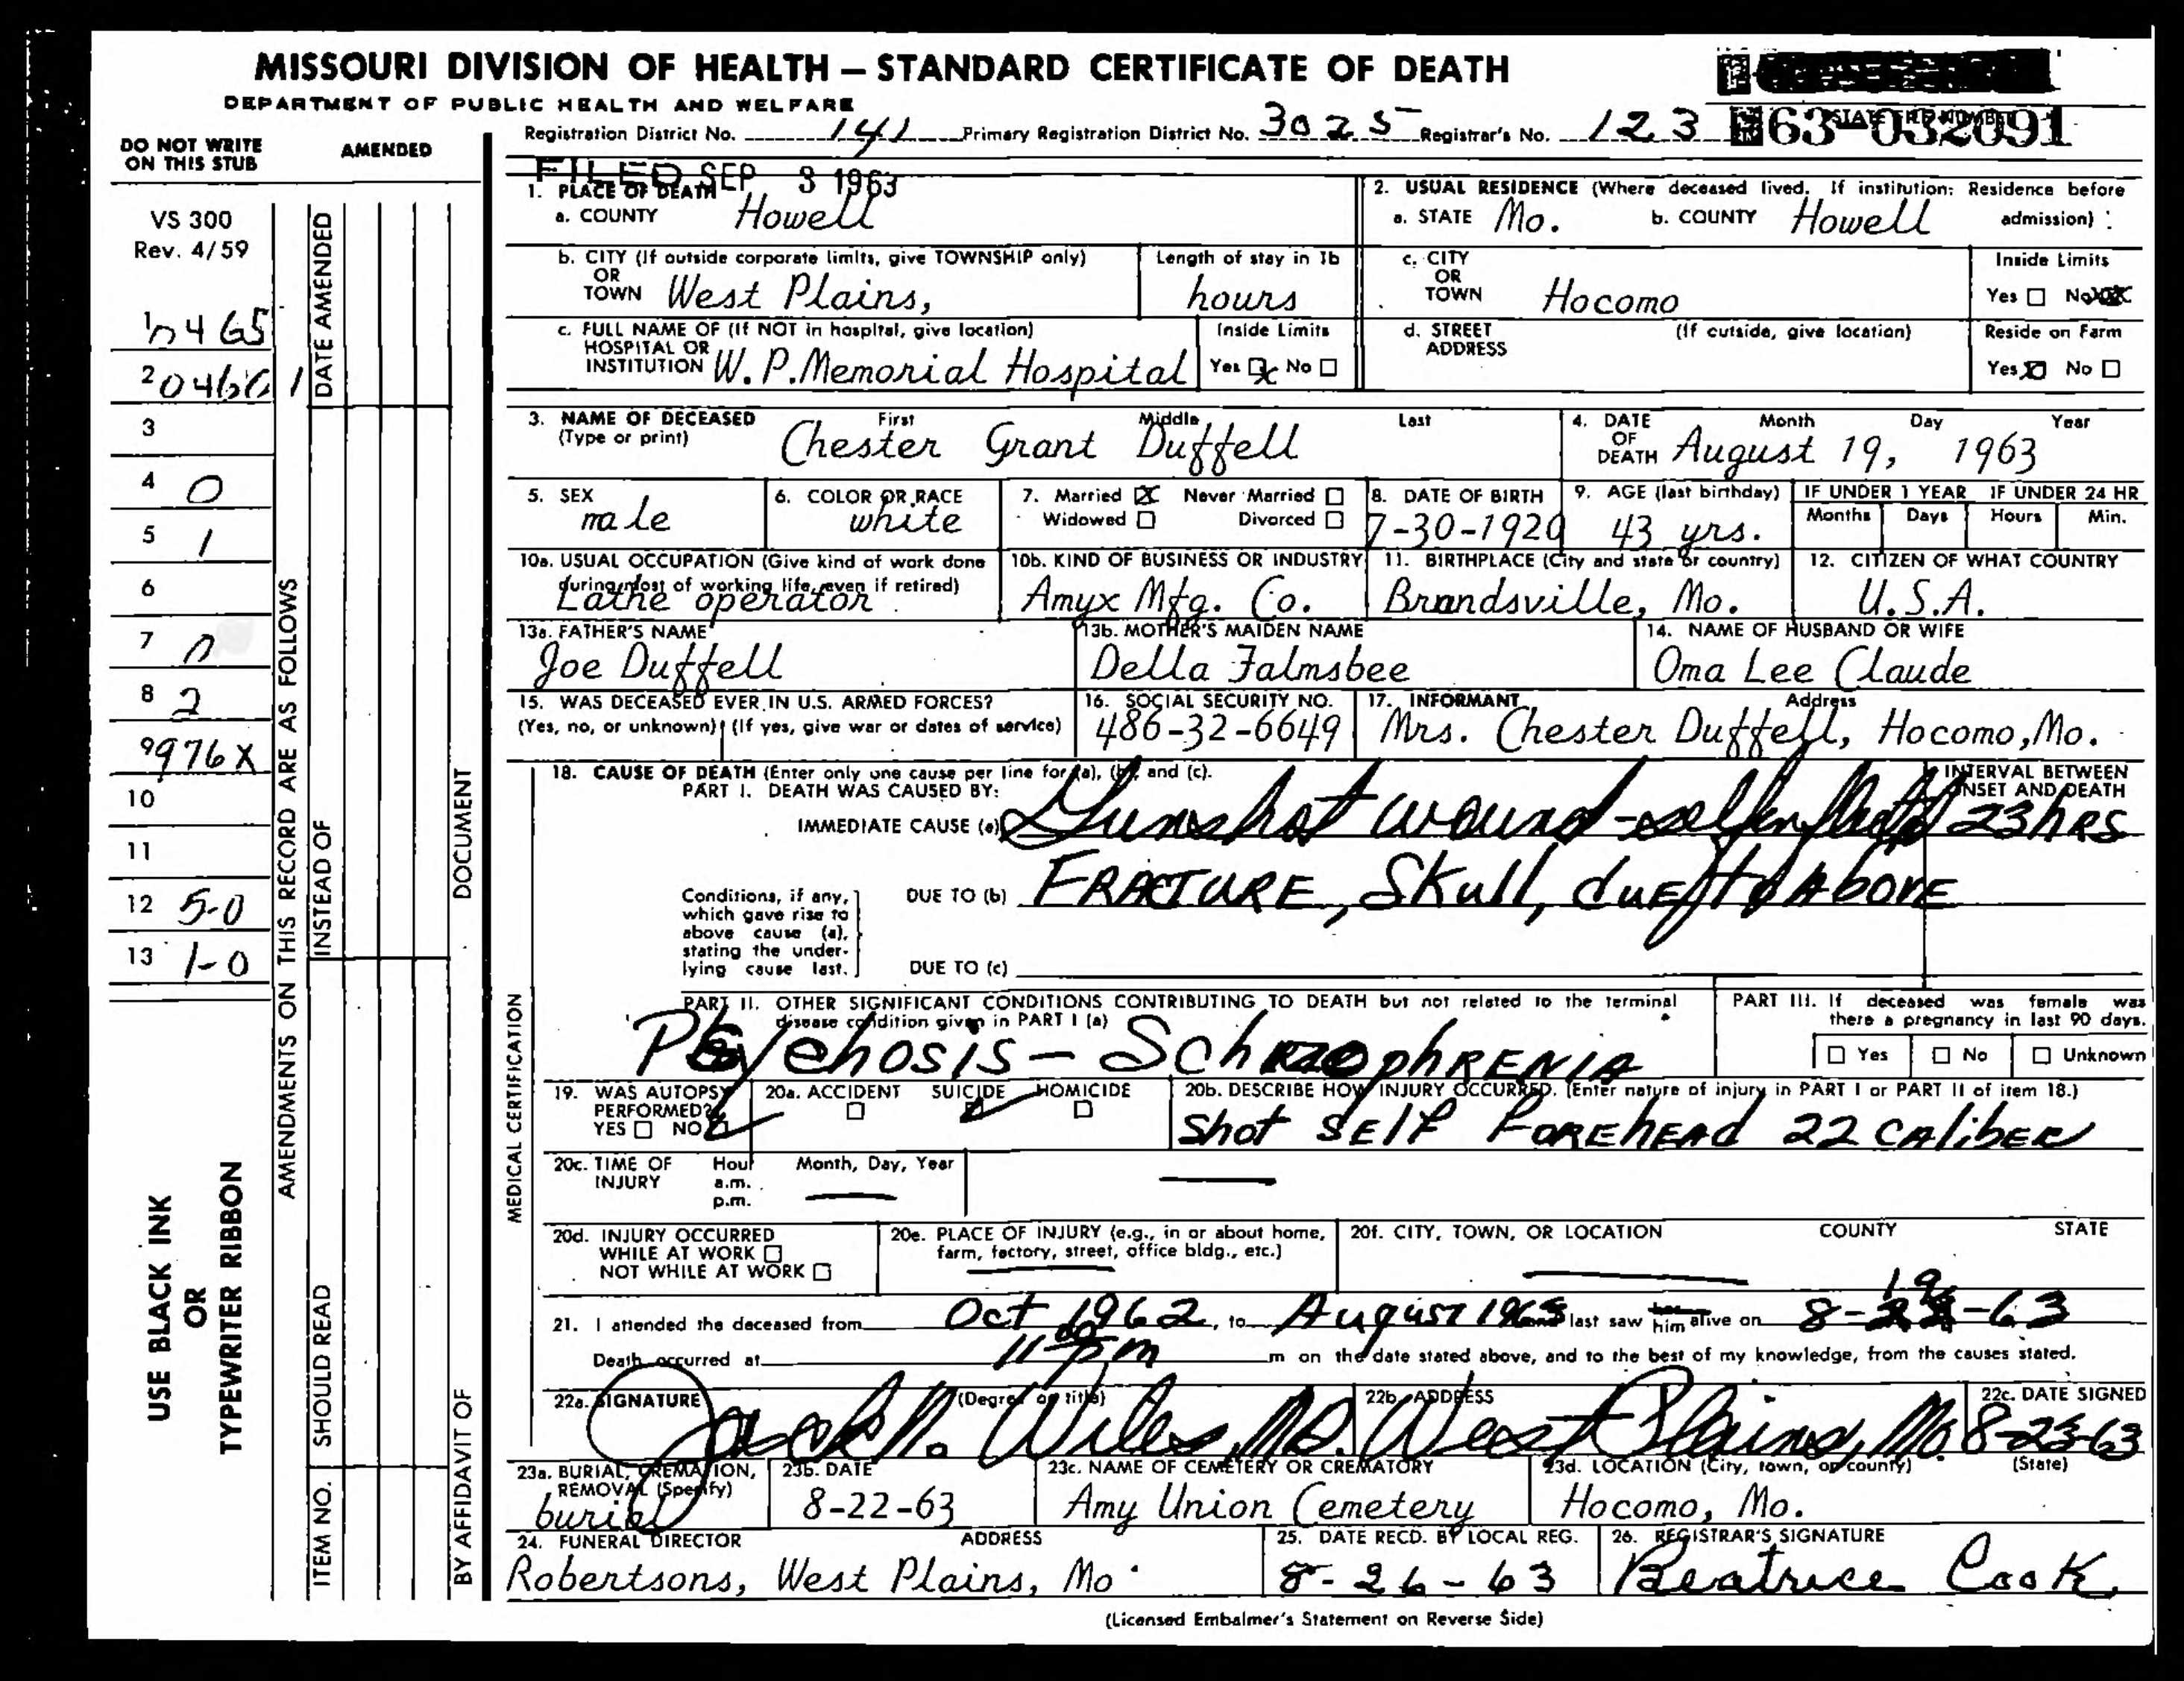 MISSOURI DIVISION OF HEALTH – STANDARD CERTIFICATE OF DEATH
DEPARTMENT OF PUBLIC HEALTH AND WELFARE
STATE FILE NUMBER
Registration District No. 141 Primary Registration District No. 3025 Registrar's No. 123 63-032091
DO NOT WRITE ON THIS STUB
AMENDED
VS 300
Rev. 4/59
1
2
3
4 0
5 1
6
7 0
8 2
9 976X
10
11
12 5-0
13 1-0
USE BLACK INK
OR
TYPEWRITER RIBBON
AMENDMENTS ON THIS RECORD ARE AS FOLLOWS
DATE AMENDED
INSTEAD OF
DOCUMENT
ITEM NO. SHOULD READ
BY AFFIDAVIT OF
FILED SEP 3 1963
1. PLACE OF DEATH
a. COUNTY Howell
2. USUAL RESIDENCE (Where deceased lived. If institution: Residence before admission)
a. STATE Mo. b. COUNTY Howell
b. CITY (If outside corporate limits, give TOWNSHIP only)
OR
TOWN West Plains,
Length of stay in 1b
hours
c. CITY
OR
TOWN Hocomo
Inside Limits
Yes No
c. FULL NAME OF (If NOT in hospital, give location)
HOSPITAL OR
INSTITUTION W.P. Memorial Hospital
Inside Limits
Yes X No
d. STREET ADDRESS (If outside, give location)
Reside on Farm
Yes X No
3. NAME OF DECEASED First Middle Last
(Type or print) Chester Grant Duffell
4. DATE OF DEATH Month Day Year
August 19, 1963
5. SEX
male
6. COLOR OR RACE
white
7. Married X Never Married
Widowed Divorced
8. DATE OF BIRTH
7-30-1920
9. AGE (last birthday)
43 yrs.
IF UNDER 1 YEAR IF UNDER 24 HR
Months Days Hours Min.
10a. USUAL OCCUPATION (Give kind of work done
during most of working life, even if retired)
Lathe operator
10b. KIND OF BUSINESS OR INDUSTRY
Amyx Mfg. Co.
11. BIRTHPLACE (City and state or country)
Brandsville, Mo.
12. CITIZEN OF WHAT COUNTRY
U.S.A.
13a. FATHER'S NAME
Joe Duffell
13b. MOTHER'S MAIDEN NAME
Della Falmsbee
14. NAME OF HUSBAND OR WIFE
Oma Lee Claude
15. WAS DECEASED EVER IN U.S. ARMED FORCES?
(Yes, no, or unknown) (If yes, give war or dates of service)
16. SOCIAL SECURITY NO.
486-32-6649
17. INFORMANT Address
Mrs. Chester Duffell, Hocomo, Mo.
MEDICAL CERTIFICATION
18. CAUSE OF DEATH (Enter only one cause per line for (a), (b), and (c).
PART I. DEATH WAS CAUSED BY:
INTERVAL BETWEEN
ONSET AND DEATH
IMMEDIATE CAUSE (a) Gunshot wound - self inflicted 23 hrs
Conditions, if any,
which gave rise to
above cause (a),
stating the under-
lying cause last.
DUE TO (b) FRACTURE, Skull, due to Above
DUE TO (c)
PART II. OTHER SIGNIFICANT CONDITIONS CONTRIBUTING TO DEATH but not related to the terminal
disease condition given in PART I (a)
Psychosis - Schizophrenia
PART III. If deceased was female was
there a pregnancy in last 90 days.
Yes No Unknown
19. WAS AUTOPSY
PERFORMED?
YES NO
20a. ACCIDENT SUICIDE HOMICIDE
20b. DESCRIBE HOW INJURY OCCURRED. (Enter nature of injury in PART I or PART II of item 18.)
Shot Self Forehead 22 caliber
20c. TIME OF Hour Month, Day, Year
INJURY a.m.
p.m.
20d. INJURY OCCURRED
WHILE AT WORK
NOT WHILE AT WORK
20e. PLACE OF INJURY (e.g., in or about home,
farm, factory, street, office bldg., etc.)
20f. CITY, TOWN, OR LOCATION COUNTY STATE
21. I attended the deceased from Oct 1962, to August 1963 last saw him alive on 8-19-63
Death occurred at 11 00 pm m on the date stated above, and to the best of my knowledge, from the causes stated.
22a. SIGNATURE (Degree or title)
Jack N. Wiles, MD.
22b. ADDRESS
West Plains, Mo.
22c. DATE SIGNED
8-23-63
23a. BURIAL, CREMATION,
REMOVAL (Specify)
burial
23b. DATE
8-22-63
23c. NAME OF CEMETERY OR CREMATORY
Amy Union Cemetery
23d. LOCATION (City, town, or county) (State)
Hocomo, Mo.
24. FUNERAL DIRECTOR ADDRESS
Robertsons, West Plains, Mo.
25. DATE RECD. BY LOCAL REG.
8-26-63
26. REGISTRAR'S SIGNATURE
Beatrice Cook
(Licensed Embalmer's Statement on Reverse Side)